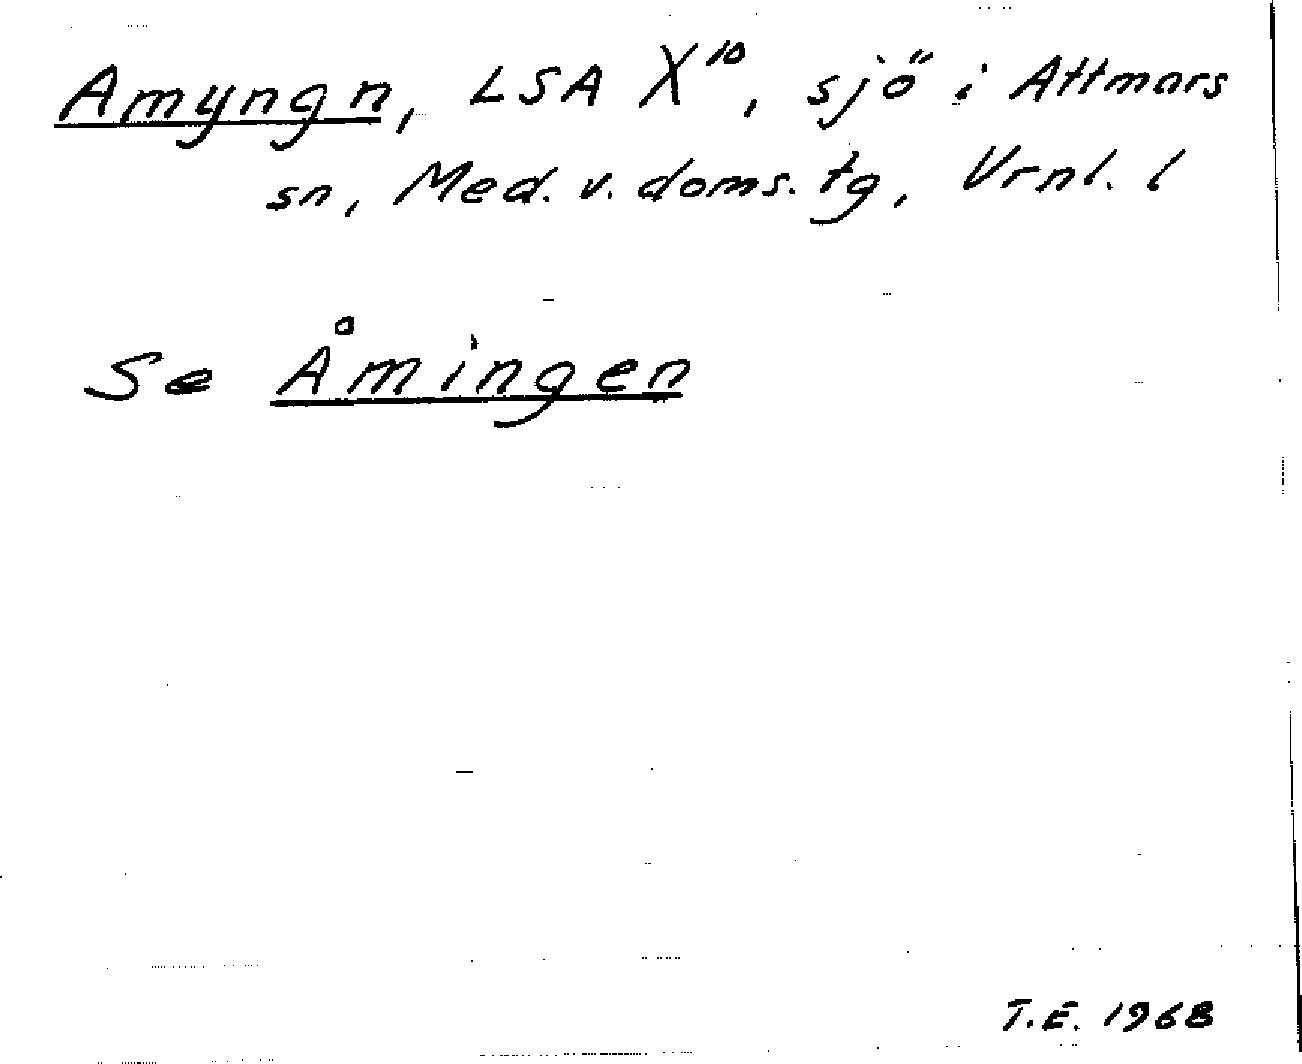 Amyngn, LSA X10, sjö i Attmars
sn, Med. v. doms. tg, Vrnl. l
Se Åmingen
T.E. 1968